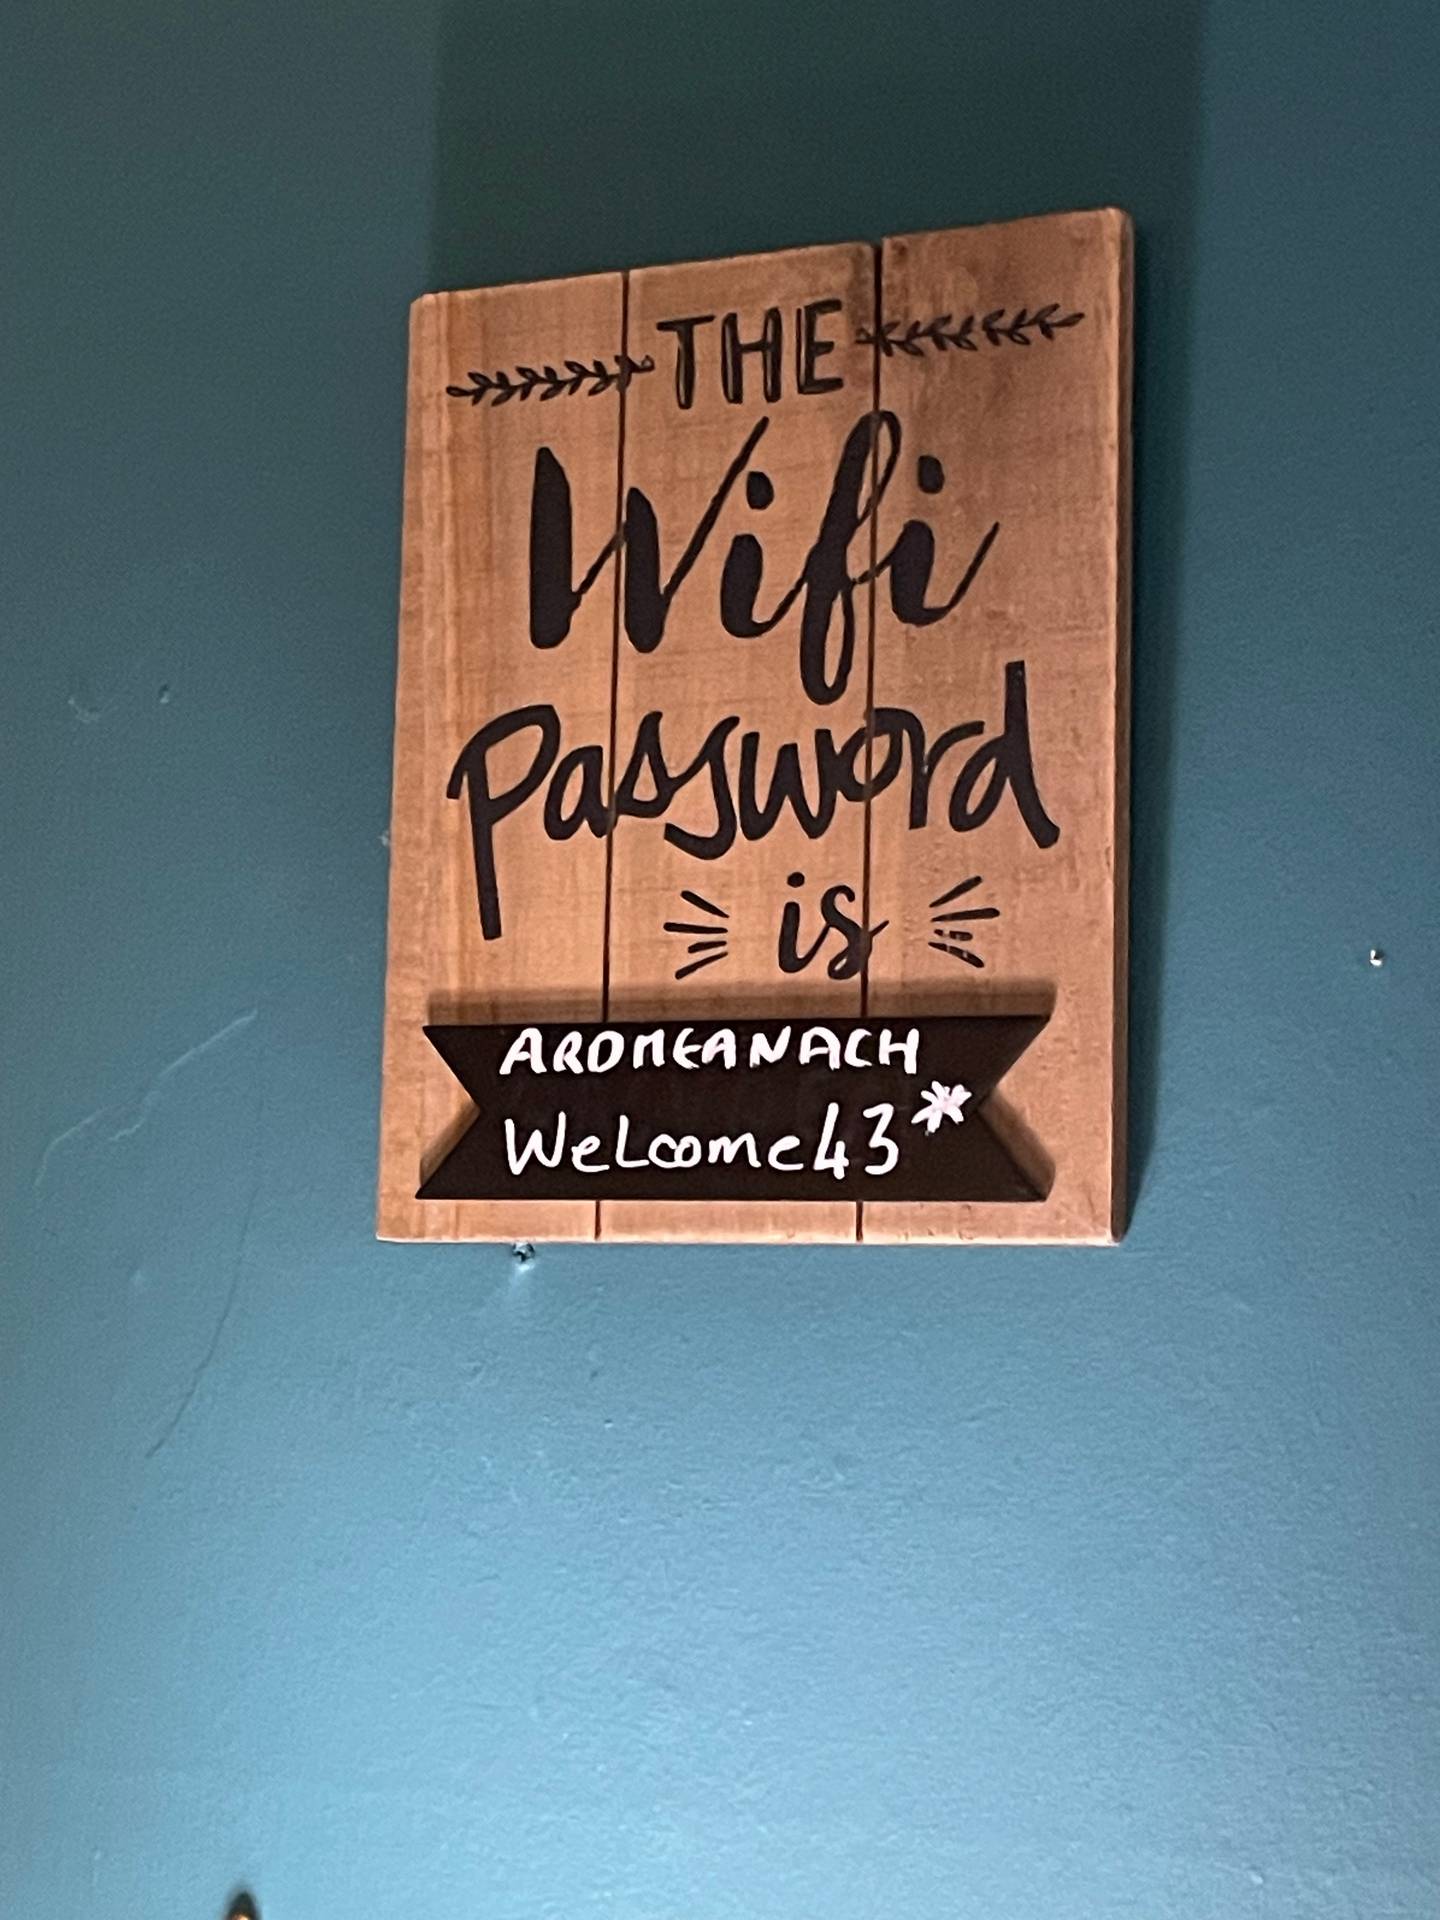 THE
Wifi
Password
is
ARDMEANACH
Welcome43*